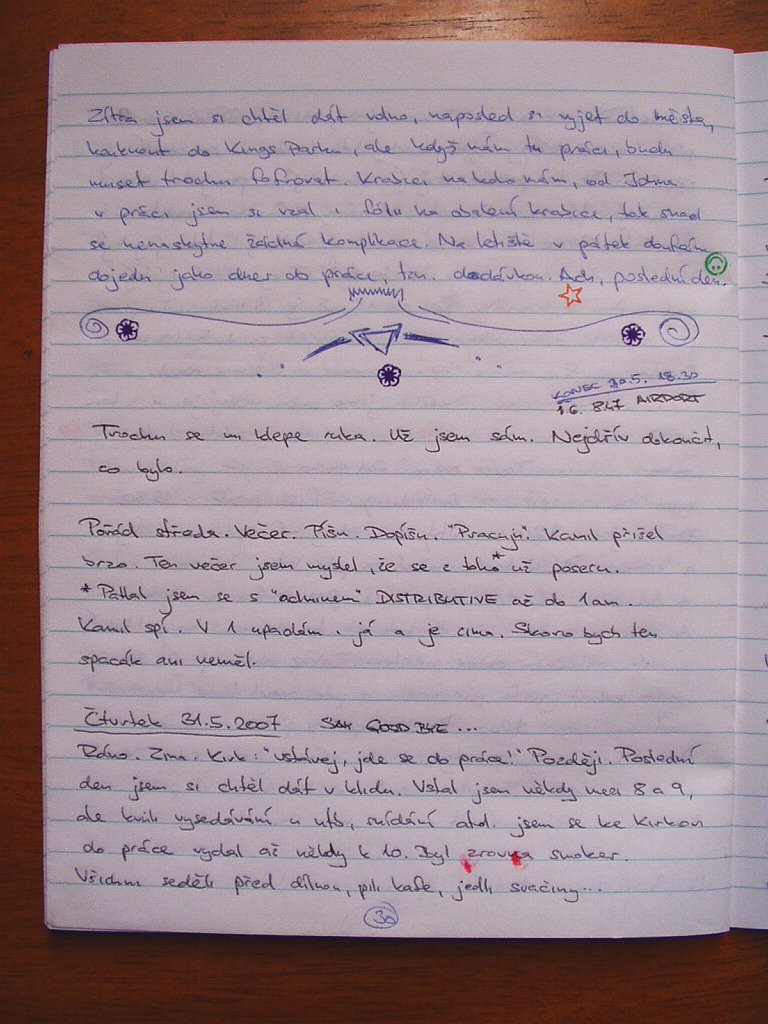 Zítra jsem si chtěl dát volno, naposled si vyjet do města,
kouknout do Kings Parku, ale když mám tu práci, budu
muset trochu fofrovat. Krabici na kolo mám, od Johna
v práci jsem si vzal i fólii na obalení krabice, tak snad
se nenaskytne žádná komplikace. Na letiště v pátek doufám
dojedu jako dnes do práce, tzn. dodávkou. Ach, poslední den.
KONEC 30.5. 18.30
1.6. 847 AIRPORT
Trochu se mi klepe ruka. Už jsem sám. Nejdřív dokončit,
co bylo.
Pořád středa. Večer. Píšu. Dopíšu. "Pracuji". Kamil přišel
brzo. Ten večer jsem myslel, že se z toho* už poseru.
* Páral jsem se s "adminem" DISTRIBUTIVE až do 1am.
Kamil spí. V 1 upadám i já a je zima. Skoro bych ten
spacák ani neměl.
Čtvrtek 31.5.2007 SAY GOOD BYE...
Ráno. Zima. Kirk: "vstávej, jde se do práce!" Později. Poslední
den jsem si chtěl dát v klidu. Vstal jsem někdy mezi 8 a 9,
ale kvůli vysedávání u ntb, snídání atd. jsem se ke Kirkovi
do práce vydal až někdy k 10. Byl zrovna smoker.
Všichni seděli před dílnou, pili kafe, jedli svačiny...
30